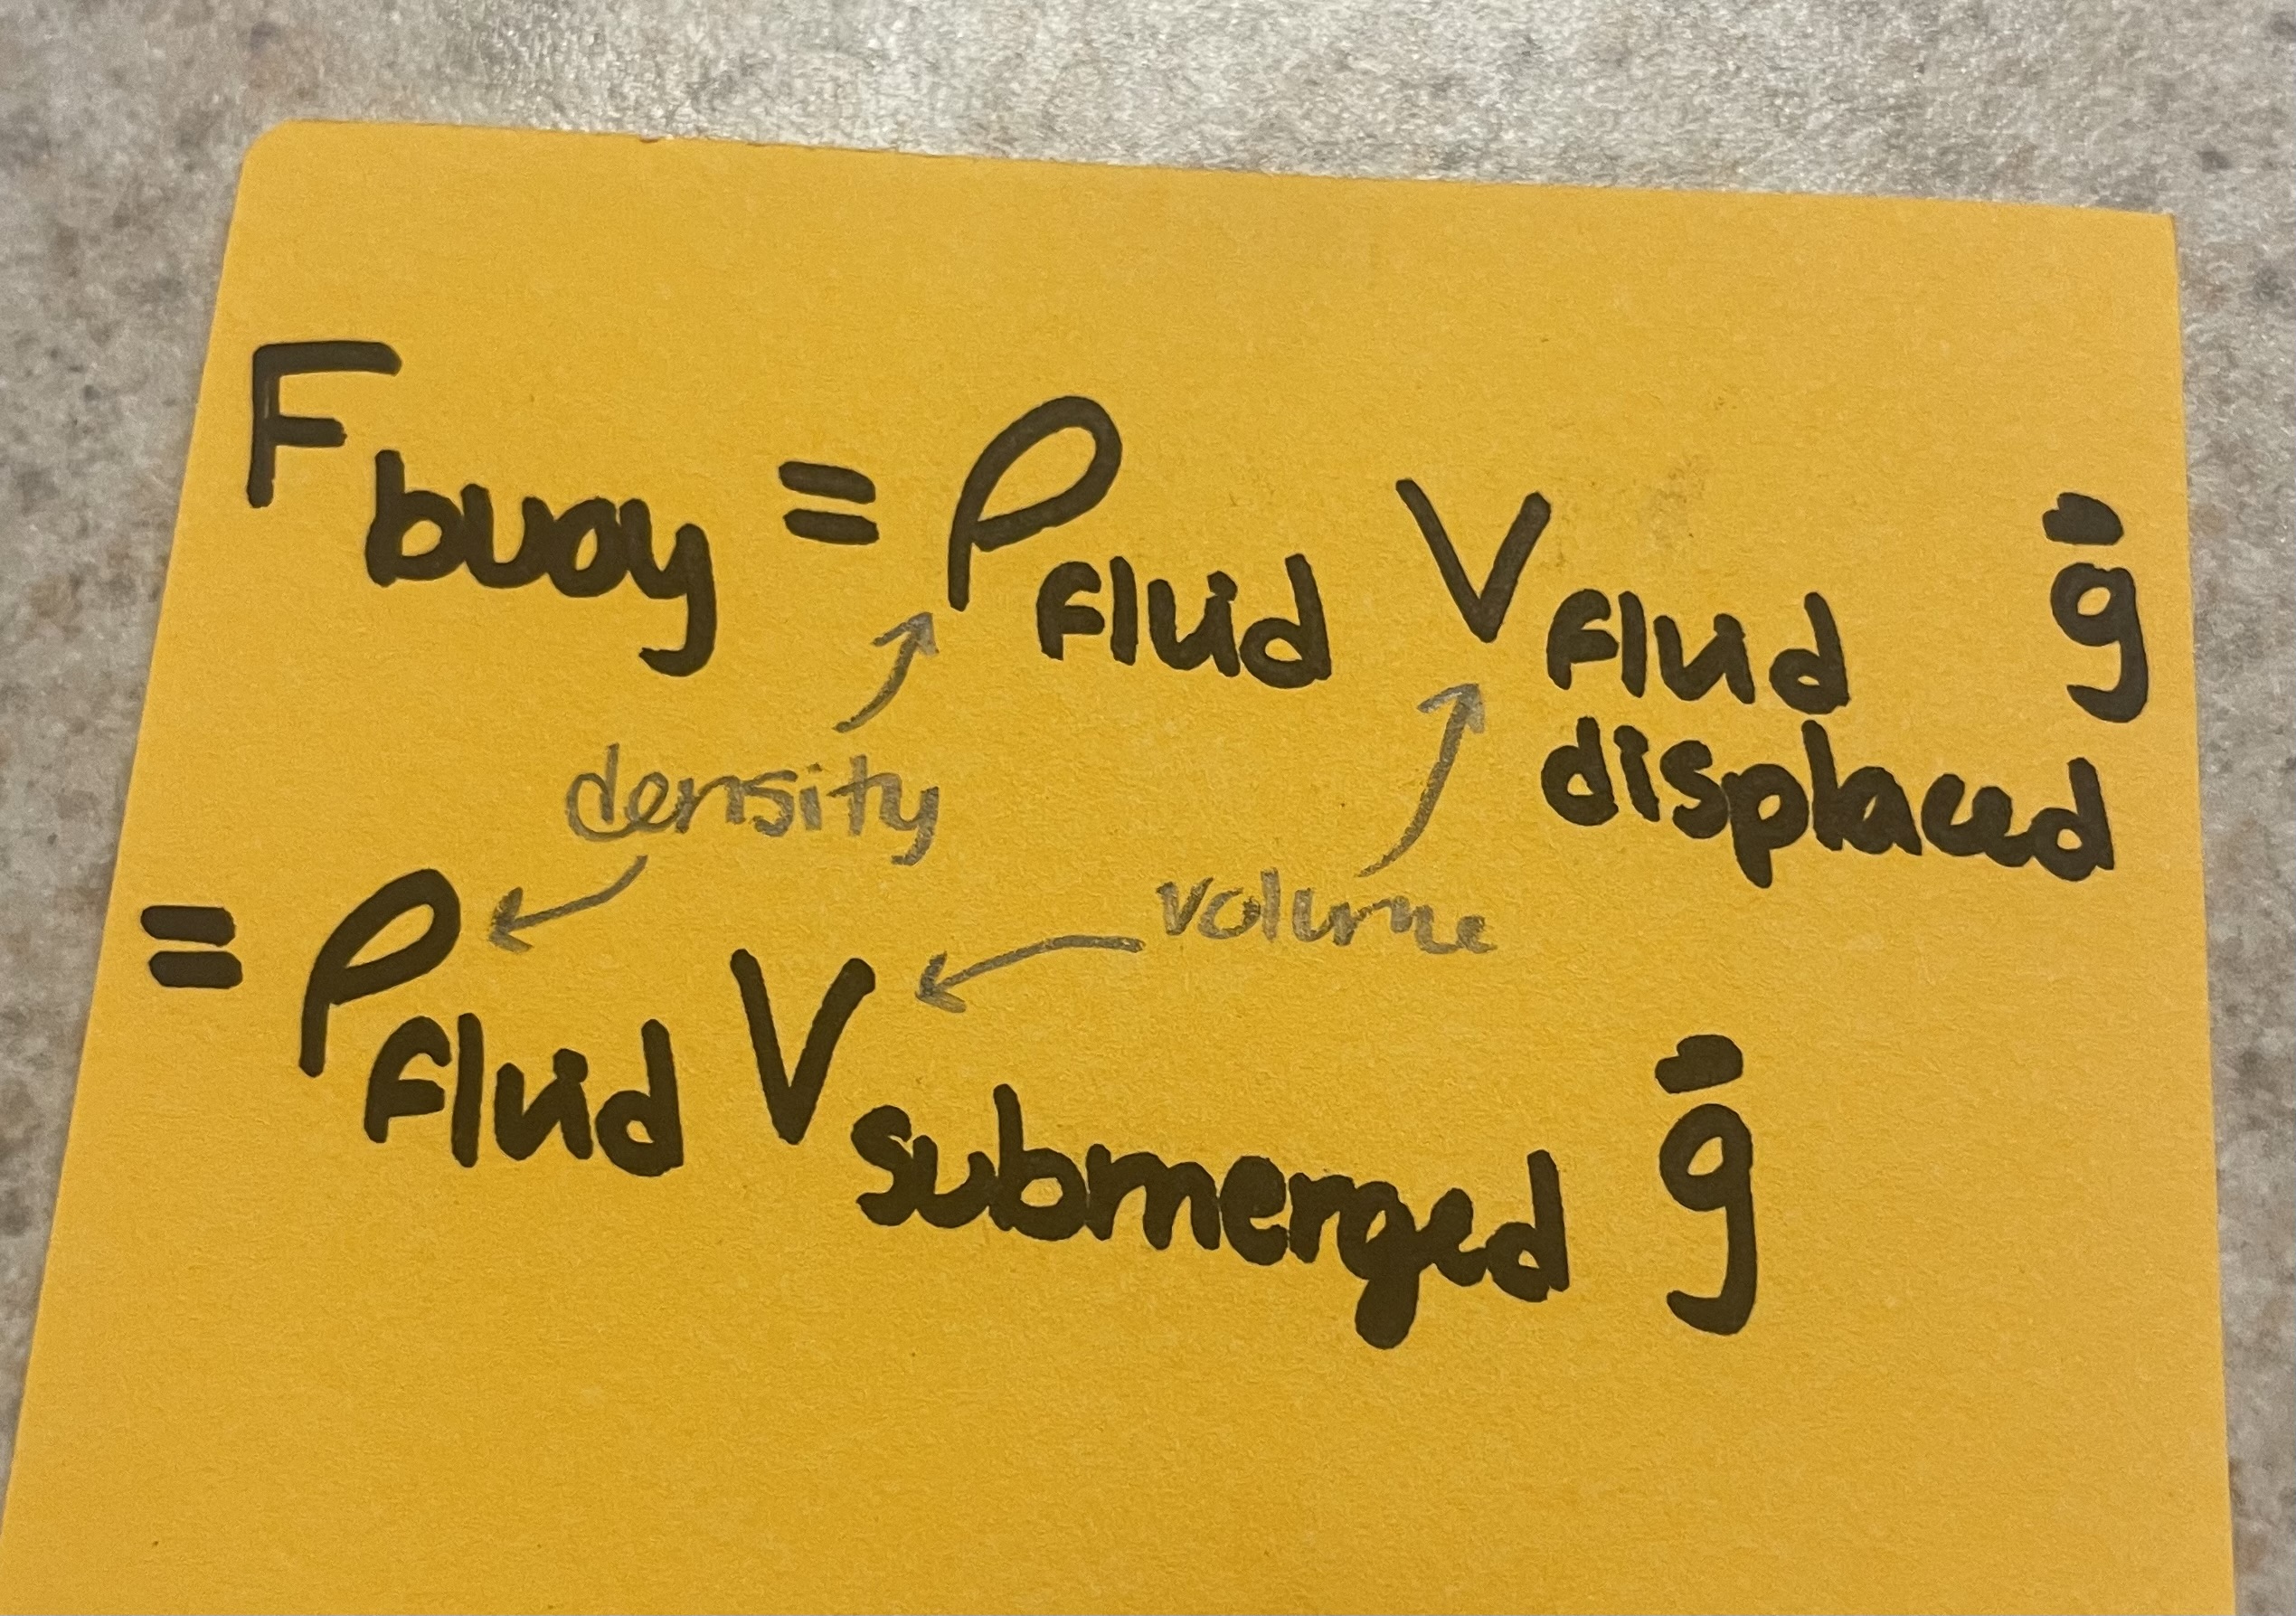 F buoy = ρ fluid V fluid displaced g⃗
density
volume
= ρ fluid V submerged g⃗